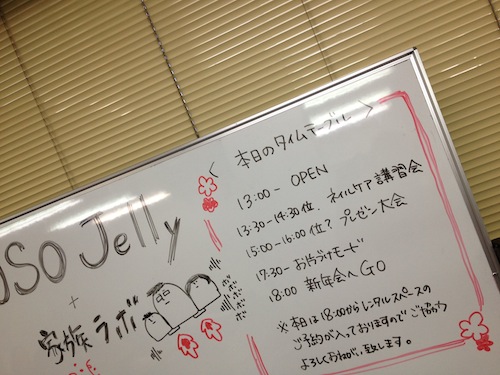 OSO Jelly
+
家族ラボ
ボボボ
ボボボ
< 本日のタイムテーブル >
13:00- OPEN
13:30-14:30位. ネイルケア講習会
15:00-16:00位? プレゼン大会
17:30- お片づけモード
18:00 新年会へGO
※本日は18:00からレンタルスペースの
ご予約が入っておりますのでご協力
よろしくおねがい致します。